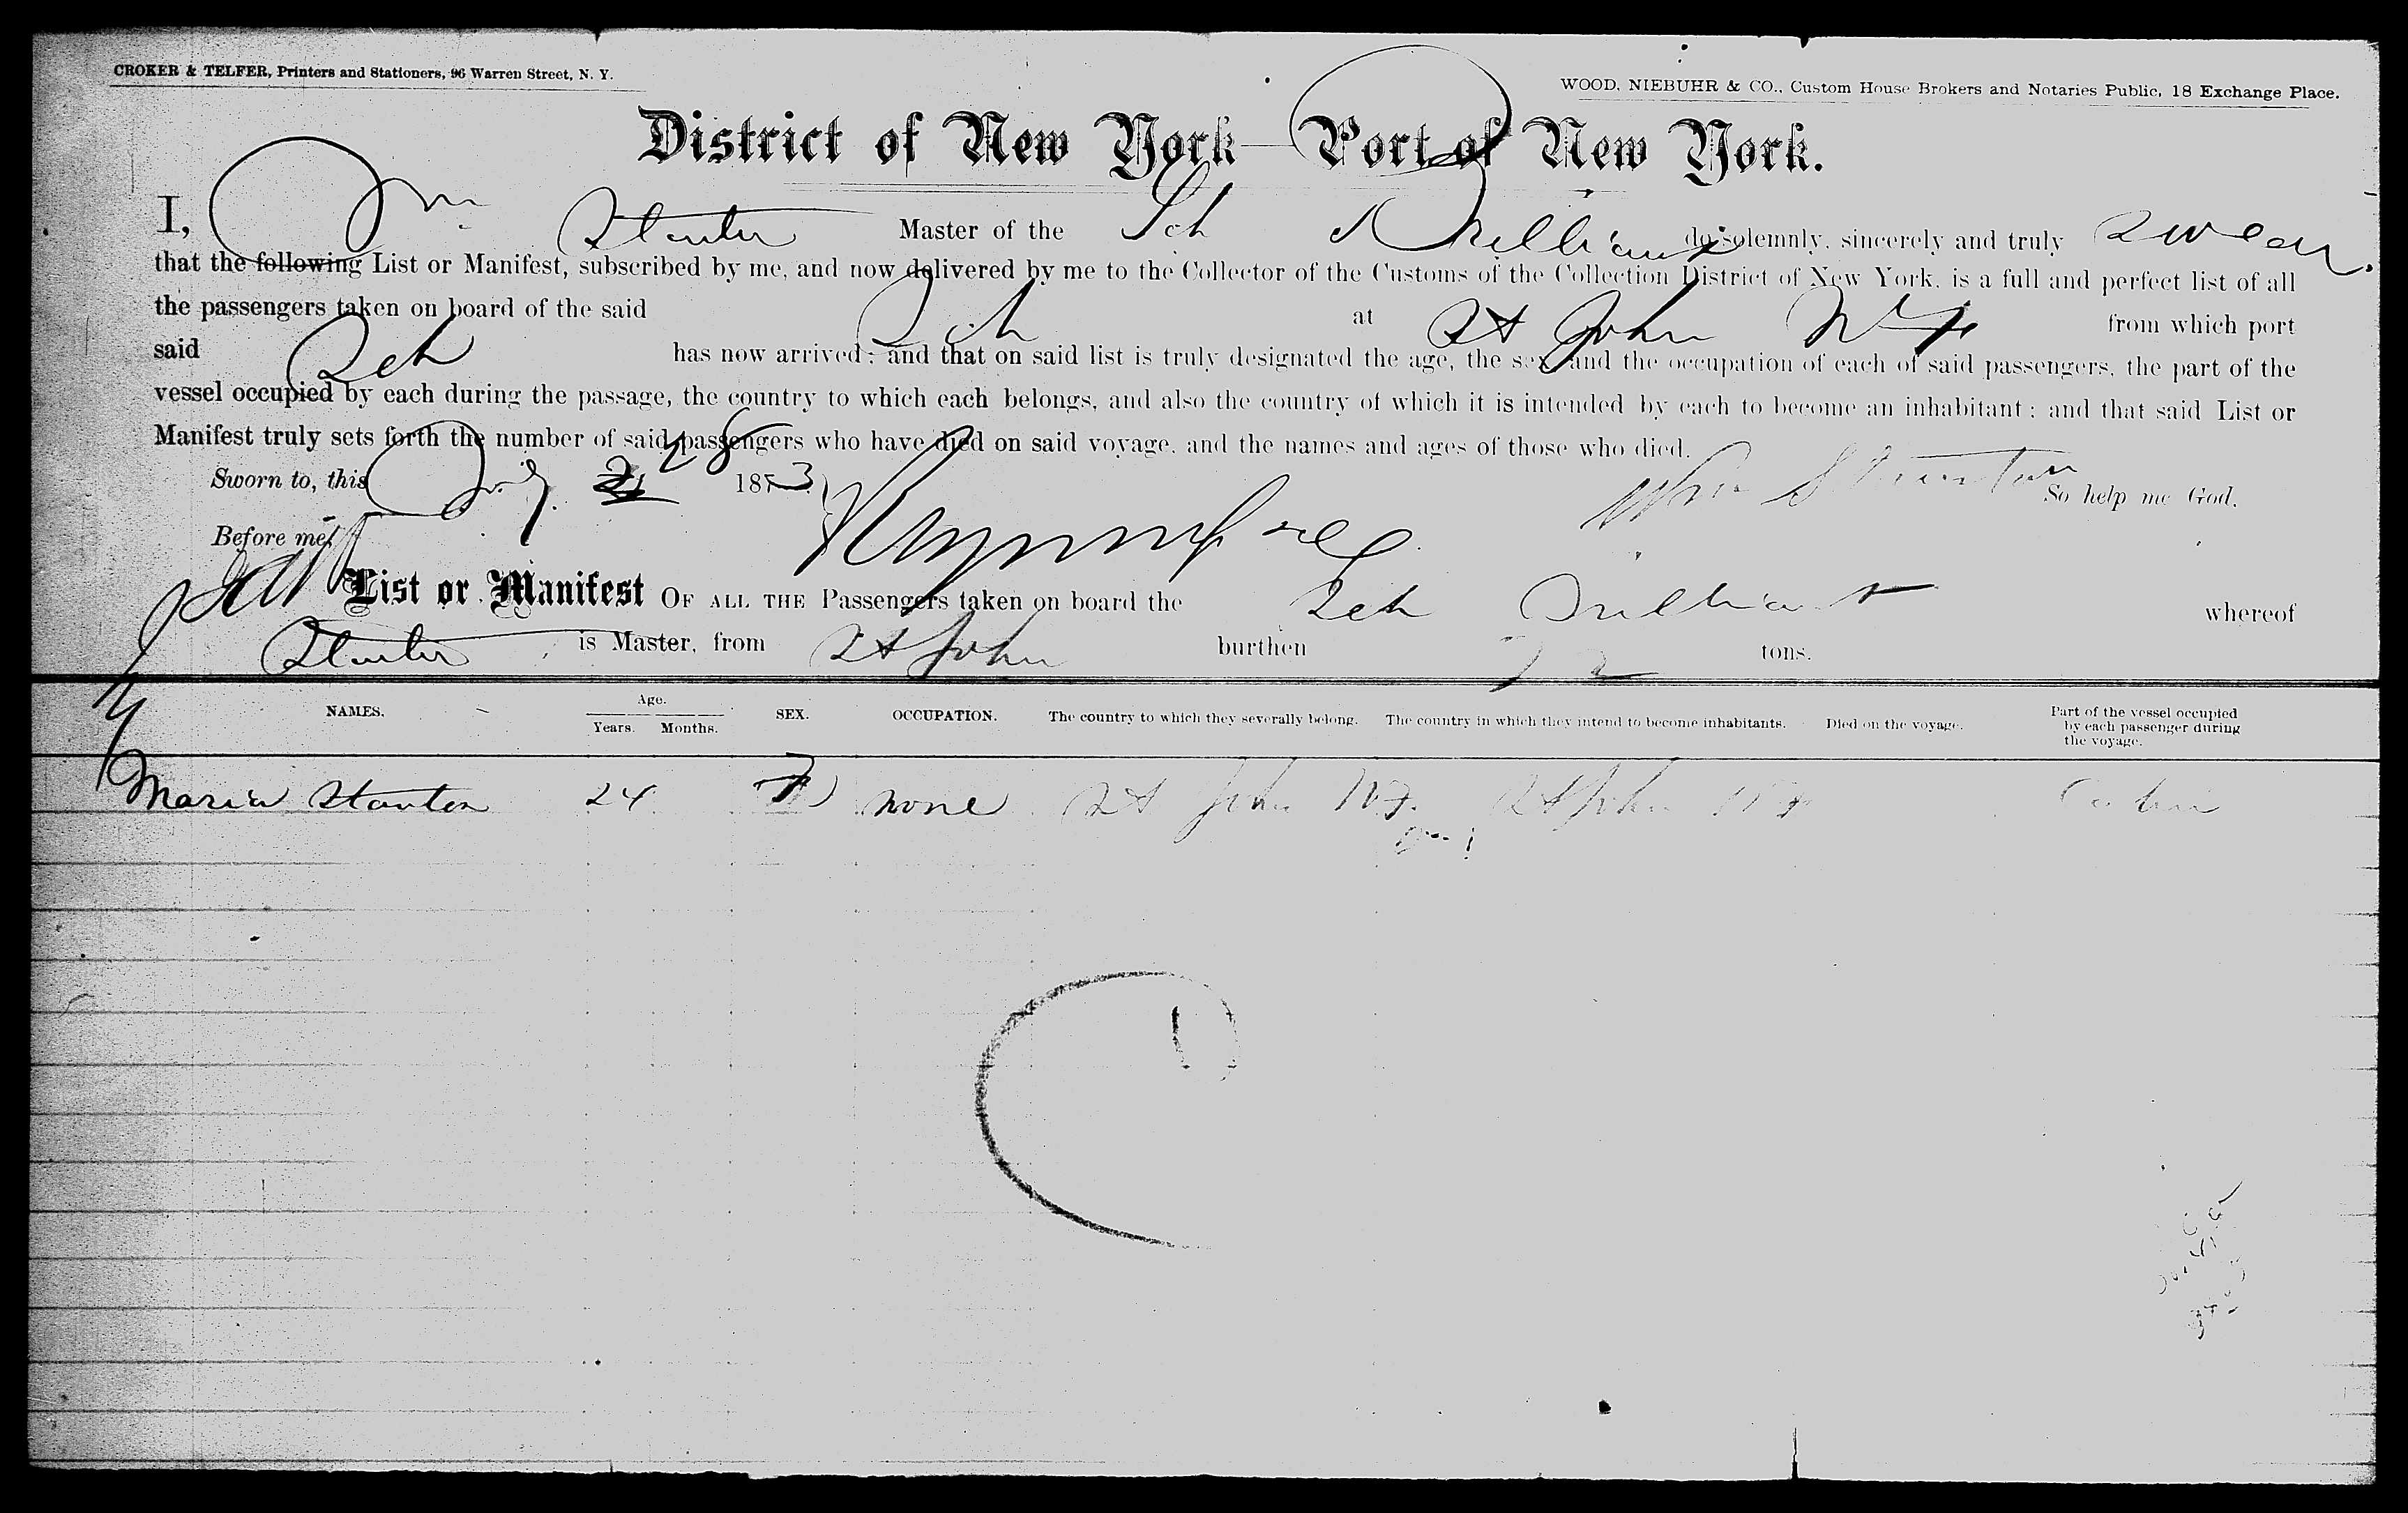 CROKER & TELFER, Printers and Stationers, 96 Warren Street, N. Y.
WOOD, NIEBUHR & CO., Custom House Brokers and Notaries Public, 18 Exchange Place.
District of New York—Port of New York.
I, Wm Stanton Master of the Sch Brilliant do solemnly, sincerely and truly swear
that the following List or Manifest, subscribed by me, and now delivered by me to the Collector of the Customs of the Collection District of New York, is a full and perfect list of all
the passengers taken on board of the said Sch at St John NF from which port
said Sch has now arrived; and that on said list is truly designated the age, the sex and the occupation of each of said passengers, the part of the
vessel occupied by each during the passage, the country to which each belongs, and also the country of which it is intended by each to become an inhabitant; and that said List or
Manifest truly sets forth the number of said passengers who have died on said voyage, and the names and ages of those who died.
Sworn to, this 28 1873 Wm Stanton So help me God.
Before me,
List or Manifest OF ALL THE Passengers taken on board the Sch Brilliant whereof
Stanton is Master, from St John burthen 72 tons.
NAMES. Age. Years. Months. SEX. OCCUPATION. The country to which they severally belong. The country in which they intend to become inhabitants. Died on the voyage. Part of the vessel occupied by each passenger during the voyage.
Maria Stanton 24 F none St John NF St John NF Cabin